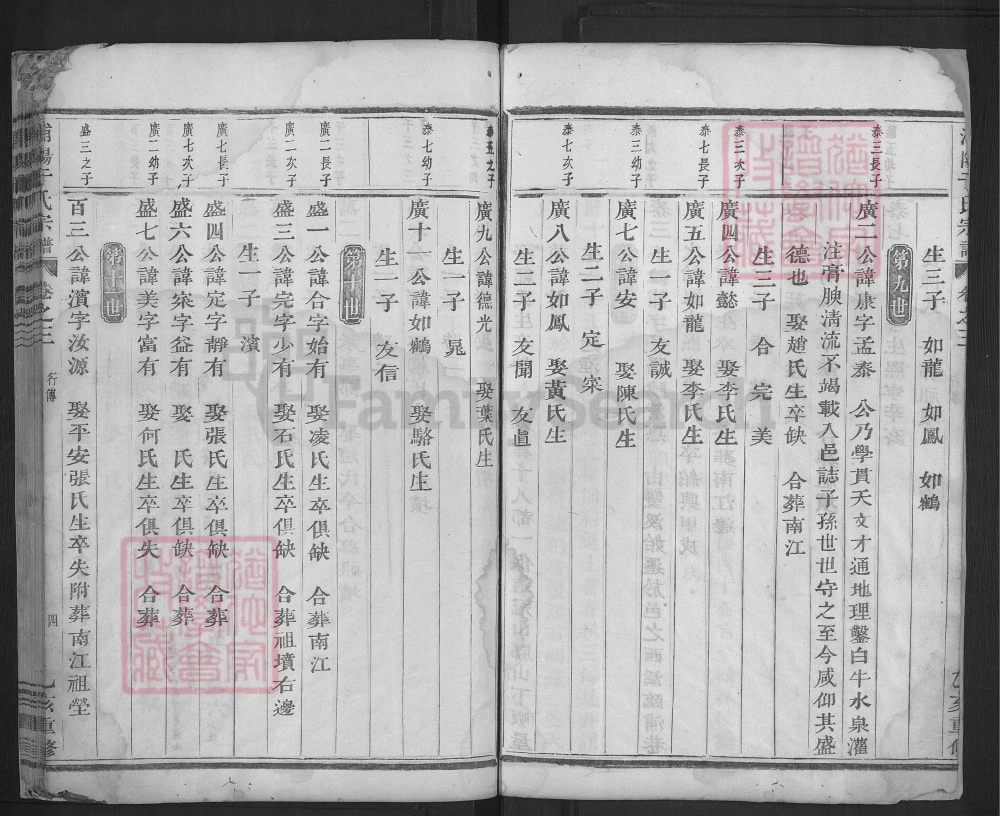 生三子 如龍 如鳳 如鶴
第九世
泰三長子
廣二公諱康字孟泰 公乃學貫天文才通地理鑿白牛水泉灌
注膏腴清流不竭載入邑誌子孫世世守之至今咸仰其盛
德也 娶趙氏生卒缺 合葬南江
生三子 合 完 美
泰三次子
廣四公諱懿 娶李氏生
泰七長子
廣五公諱如龍 娶李氏生
生一子 友誠
泰三幼子
廣七公諱安 娶陳氏生
生二子 定 宷
泰七次子
廣八公諱如鳳 娶黃氏生
生二子 友聞 友直
泰五之子
廣九公諱德光 娶葉氏生
生一子 晁
泰七幼子
廣十一公諱如鶴 娶駱氏生
生一子 友信
第十世
廣二長子
盛一公諱合字始有 娶凌氏生卒俱缺 合葬南江
廣二次子
盛三公諱完字少有 娶石氏生卒俱缺 合葬祖墳右邊
生一子 濱
廣七長子
盛四公諱定字靜有 娶張氏生卒俱缺 合葬
廣七次子
盛六公諱宷字益有 娶 氏生卒俱缺 合葬
廣二幼子
盛七公諱美字富有 娶何氏生卒俱失 合葬
第十一世
盛三之子
百三公諱濱字汝源 娶平安張氏生卒失附葬南江祖塋
浦陽于氏宗譜 卷之三 行傳 四 乙亥重修
FamilySearch